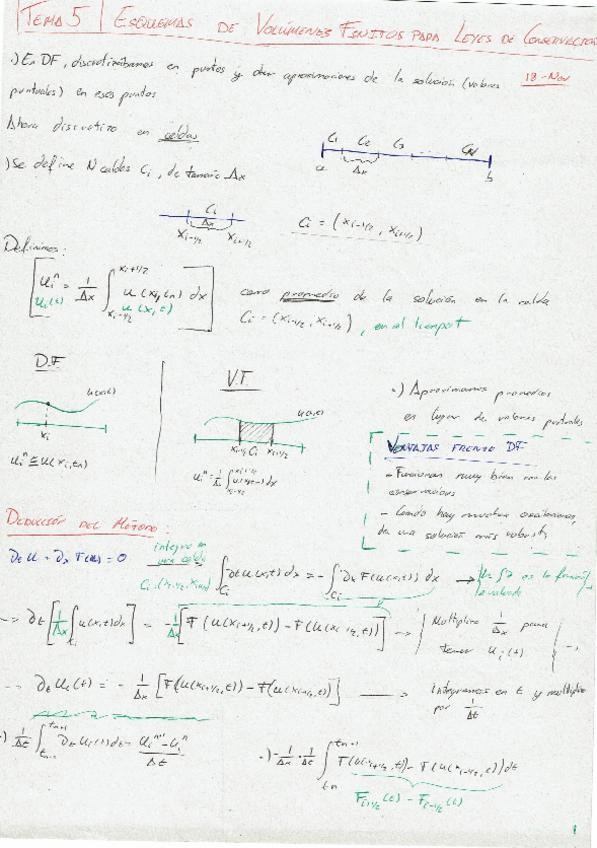 TEMA 5 | ESQUEMAS DE VOLÚMENES FINITOS PARA LEYES DE CONSERVACIÓN
18-Nov
·) En DF, discretizábamos en puntos y dan aproximaciones de la solución (valores
puntuales) en esos puntos
Ahora discretizo en celdas
·) Se define N celdas Ci, de tamaño Δx
C1 C2 C3 ... CN
a Δx b
Ci
Δx
xi-1/2 xi+1/2
Ci = (xi-1/2, xi+1/2)
Definimos:
ui^n = 1/Δx ∫_{xi-1/2}^{xi+1/2} u(x, tn) dx como promedio de la solución en la celda
ui(t) u(x, t) Ci = (xi-1/2, xi+1/2), en el tiempo t
D.F
u(x,t)
xi
ui^n ≅ u(xi, tn)
V.F
u(x,t)
xi-1/2 Ci xi+1/2
ui^n = 1/Δx ∫_{xi-1/2}^{xi+1/2} u(x,t) dx
·) Aproximamos promedios
en lugar de valores puntuales
VENTAJAS FRENTE DF
- Funcionan muy bien con las
- Cuando hay muchas oscilaciones,
da una solución más robusta
DEDUCCIÓN DEL MÉTODO:
∂t u + ∂x F(u) = 0 integro en una celda Ci (xi-1/2, xi+1/2) ∫_{Ci} ∂t u(x,t) dx = - ∫_{Ci} ∂x F(u(x,t)) dx → es la función evaluada
→ ∂t [1/Δx ∫_{Ci} u(x,t) dx] = -1/Δx [F(u(xi+1/2, t)) - F(u(xi-1/2, t))] → Multiplico 1/Δx para
tener ui(t) →
→ ∂t ui(t) = - 1/Δx [F(u(xi+1/2, t)) - F(u(xi-1/2, t))] → Integramos en t y multiplico
por 1/Δt
·) 1/Δt ∫_{tn}^{tn+1} ∂t ui(t) dt = (ui^{n+1} - ui^n)/Δt
·) -1/Δx · 1/Δt ∫_{tn}^{tn+1} F(u(xi+1/2, t)) - F(u(xi-1/2, t)) dt
Fi+1/2(t) - Fi-1/2(t)
1